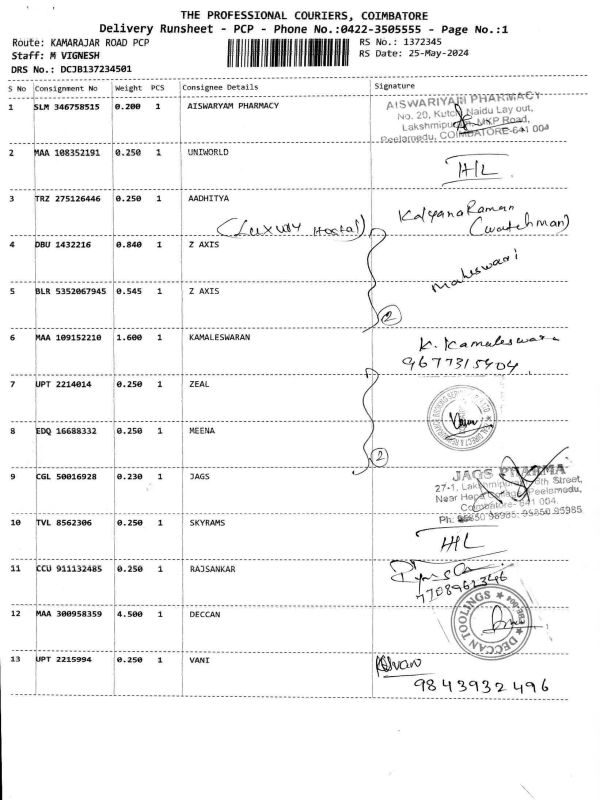 THE PROFESSIONAL COURIERS, COIMBATORE
Delivery Runsheet - PCP - Phone No.:0422-3505555 - Page No.:1
Route: KAMARAJAR ROAD PCP RS No.: 1372345
Staff: M VIGNESH RS Date: 25-May-2024
DRS No.: DCJB137234501
S No Consignment No Weight PCS Consignee Details Signature
1 SLM 346758515 0.200 1 AISWARYAM PHARMACY
AISWARIYAM PHARMACY
No. 20, Kutch Naidu Lay out,
MKP Road,
Peelamedu, COIMBATORE-641 004
2 MAA 108352191 0.250 1 UNIWORLD
H/L
3 TRZ 275126446 0.250 1 AADHITYA
Kalyana Raman
(Luxury Hostal) (watchman)
4 DBU 1432216 0.840 1 Z AXIS
Maheswari
5 BLR 5352067945 0.545 1 Z AXIS
2
6 MAA 109152210 1.600 1 KAMALESWARAN
K. Kamaleswara
9677315404
7 UPT 2214014 0.250 1 ZEAL
8 EDQ 16688332 0.250 1 MEENA
2
9 CGL 50016928 0.230 1 JAGS
JAGS PHARMA
27-1, 8th Street,
Near Peelamedu,
Coimbatore- 641 004.
Ph: 95850 98985, 95850 95985
10 TVL 8562306 0.250 1 SKYRAMS
H/L
11 CCU 911132485 0.250 1 RAJSANKAR
7708962346
12 MAA 300958359 4.500 1 DECCAN
DECCAN TOOLINGS
CBE-004
13 UPT 2215994 0.250 1 VANI
9843932496